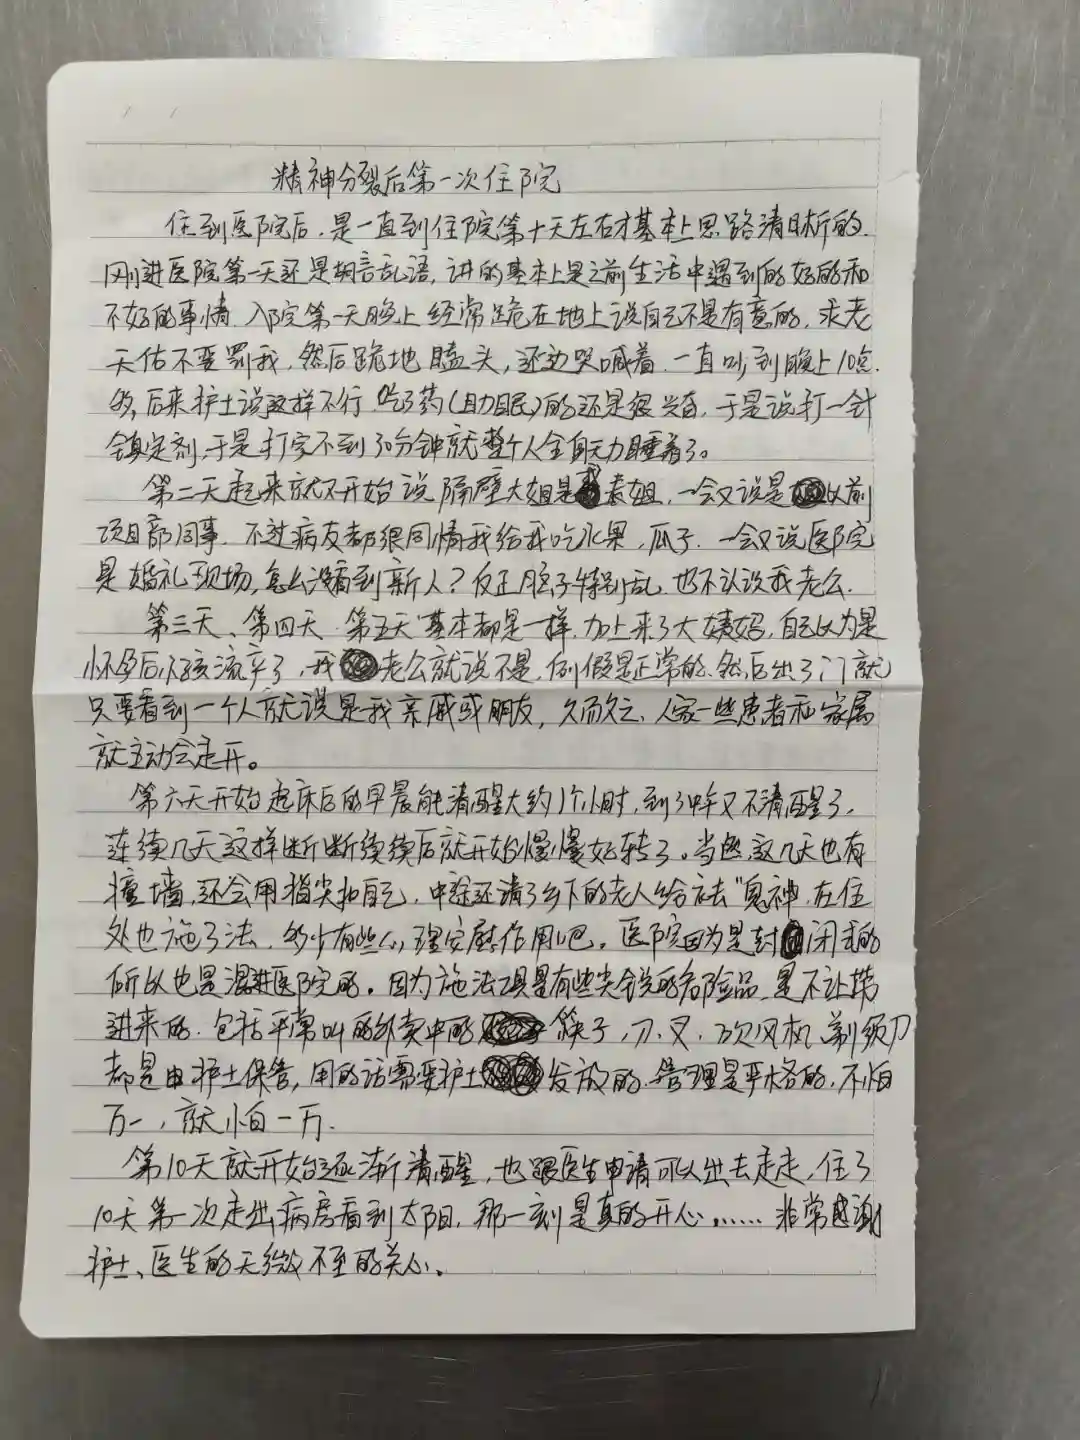 精神分裂后第一次住院
住到医院后，是一直到住院第十天左右才基本上思路清晰的.
刚进医院第一天还是胡言乱语，讲的基本上是之前生活中遇到的好的和
不好的事情. 入院第一天晚上经常跪在地上说自己不是有意的，求老
天佑不要罚我，然后跪地磕头，还边哭喊着. 一直叫到晚上10点
多，后来护士说这样不行. 吃了药(助眠)的还是很兴奋，于是说打一针
镇定剂，于是打完不到30分钟就整个人全身无力睡着了。
第二天起来就开始说隔壁大姐是表姐，一会又说是以前
项目部同事. 不过病友都很同情我给我吃水果，瓜子. 一会又说医院
是婚礼现场，怎么没看到新人？反正脑子特别乱. 也不认识我老公.
第三天、第四天. 第五天基本都是一样. 加上来了大姨妈，自己以为是
怀孕后小孩流产了，我老公就说不是，例假是正常的. 然后出了门就
只要看到一个人就说是我亲戚或朋友，久而久之、人家一些患者和家属
就主动会走开。
第六天开始起床后的早晨能清醒大约1个小时，到了中午又不清醒了，
连续几天这样断断续续后就开始慢慢好转了。当然，这几天也有
撞墙，还会用指尖掐自己，中途还请了乡下的老人给我去"鬼神，在住
处也施了法，多少有些心理安慰作用吧。医院因为是封闭式的
所以也是混进医院的。因为施法工具是有些尖锐的危险品，是不让带
进来的. 包括平常叫的外卖中的筷子，刀、叉、吹风机、剃须刀
都是由护士保管，用的话需要护士发放的. 管理是严格的，不怕
万一，就怕一万.
第10天就开始逐渐清醒，也跟医生申请可以出去走走，住了
10天第一次走出病房看到太阳，那一刻是真的开心，...... 非常感谢
护士、医生的无微不至的关心。